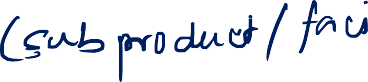 (subproduct / faci